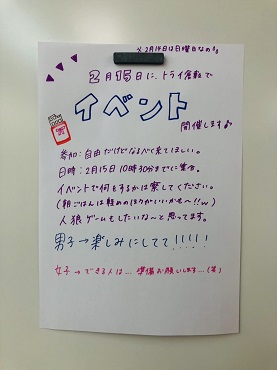 ※2月14日は日曜日なので
2月15日に、トライ倉敷で
イベント
開催します♪
参加:自由だけどなるべく来てほしい。
日時:2月15日 10時30分までに集合。
イベントで何をするかは察してください。
(朝ごはんは軽めのほうがいいかも〜!!w)
人狼ゲームもしたいな〜と思ってます。
男子→楽しみにしてて!!!!!
女子→できる人は… 準備お願いします…(笑)